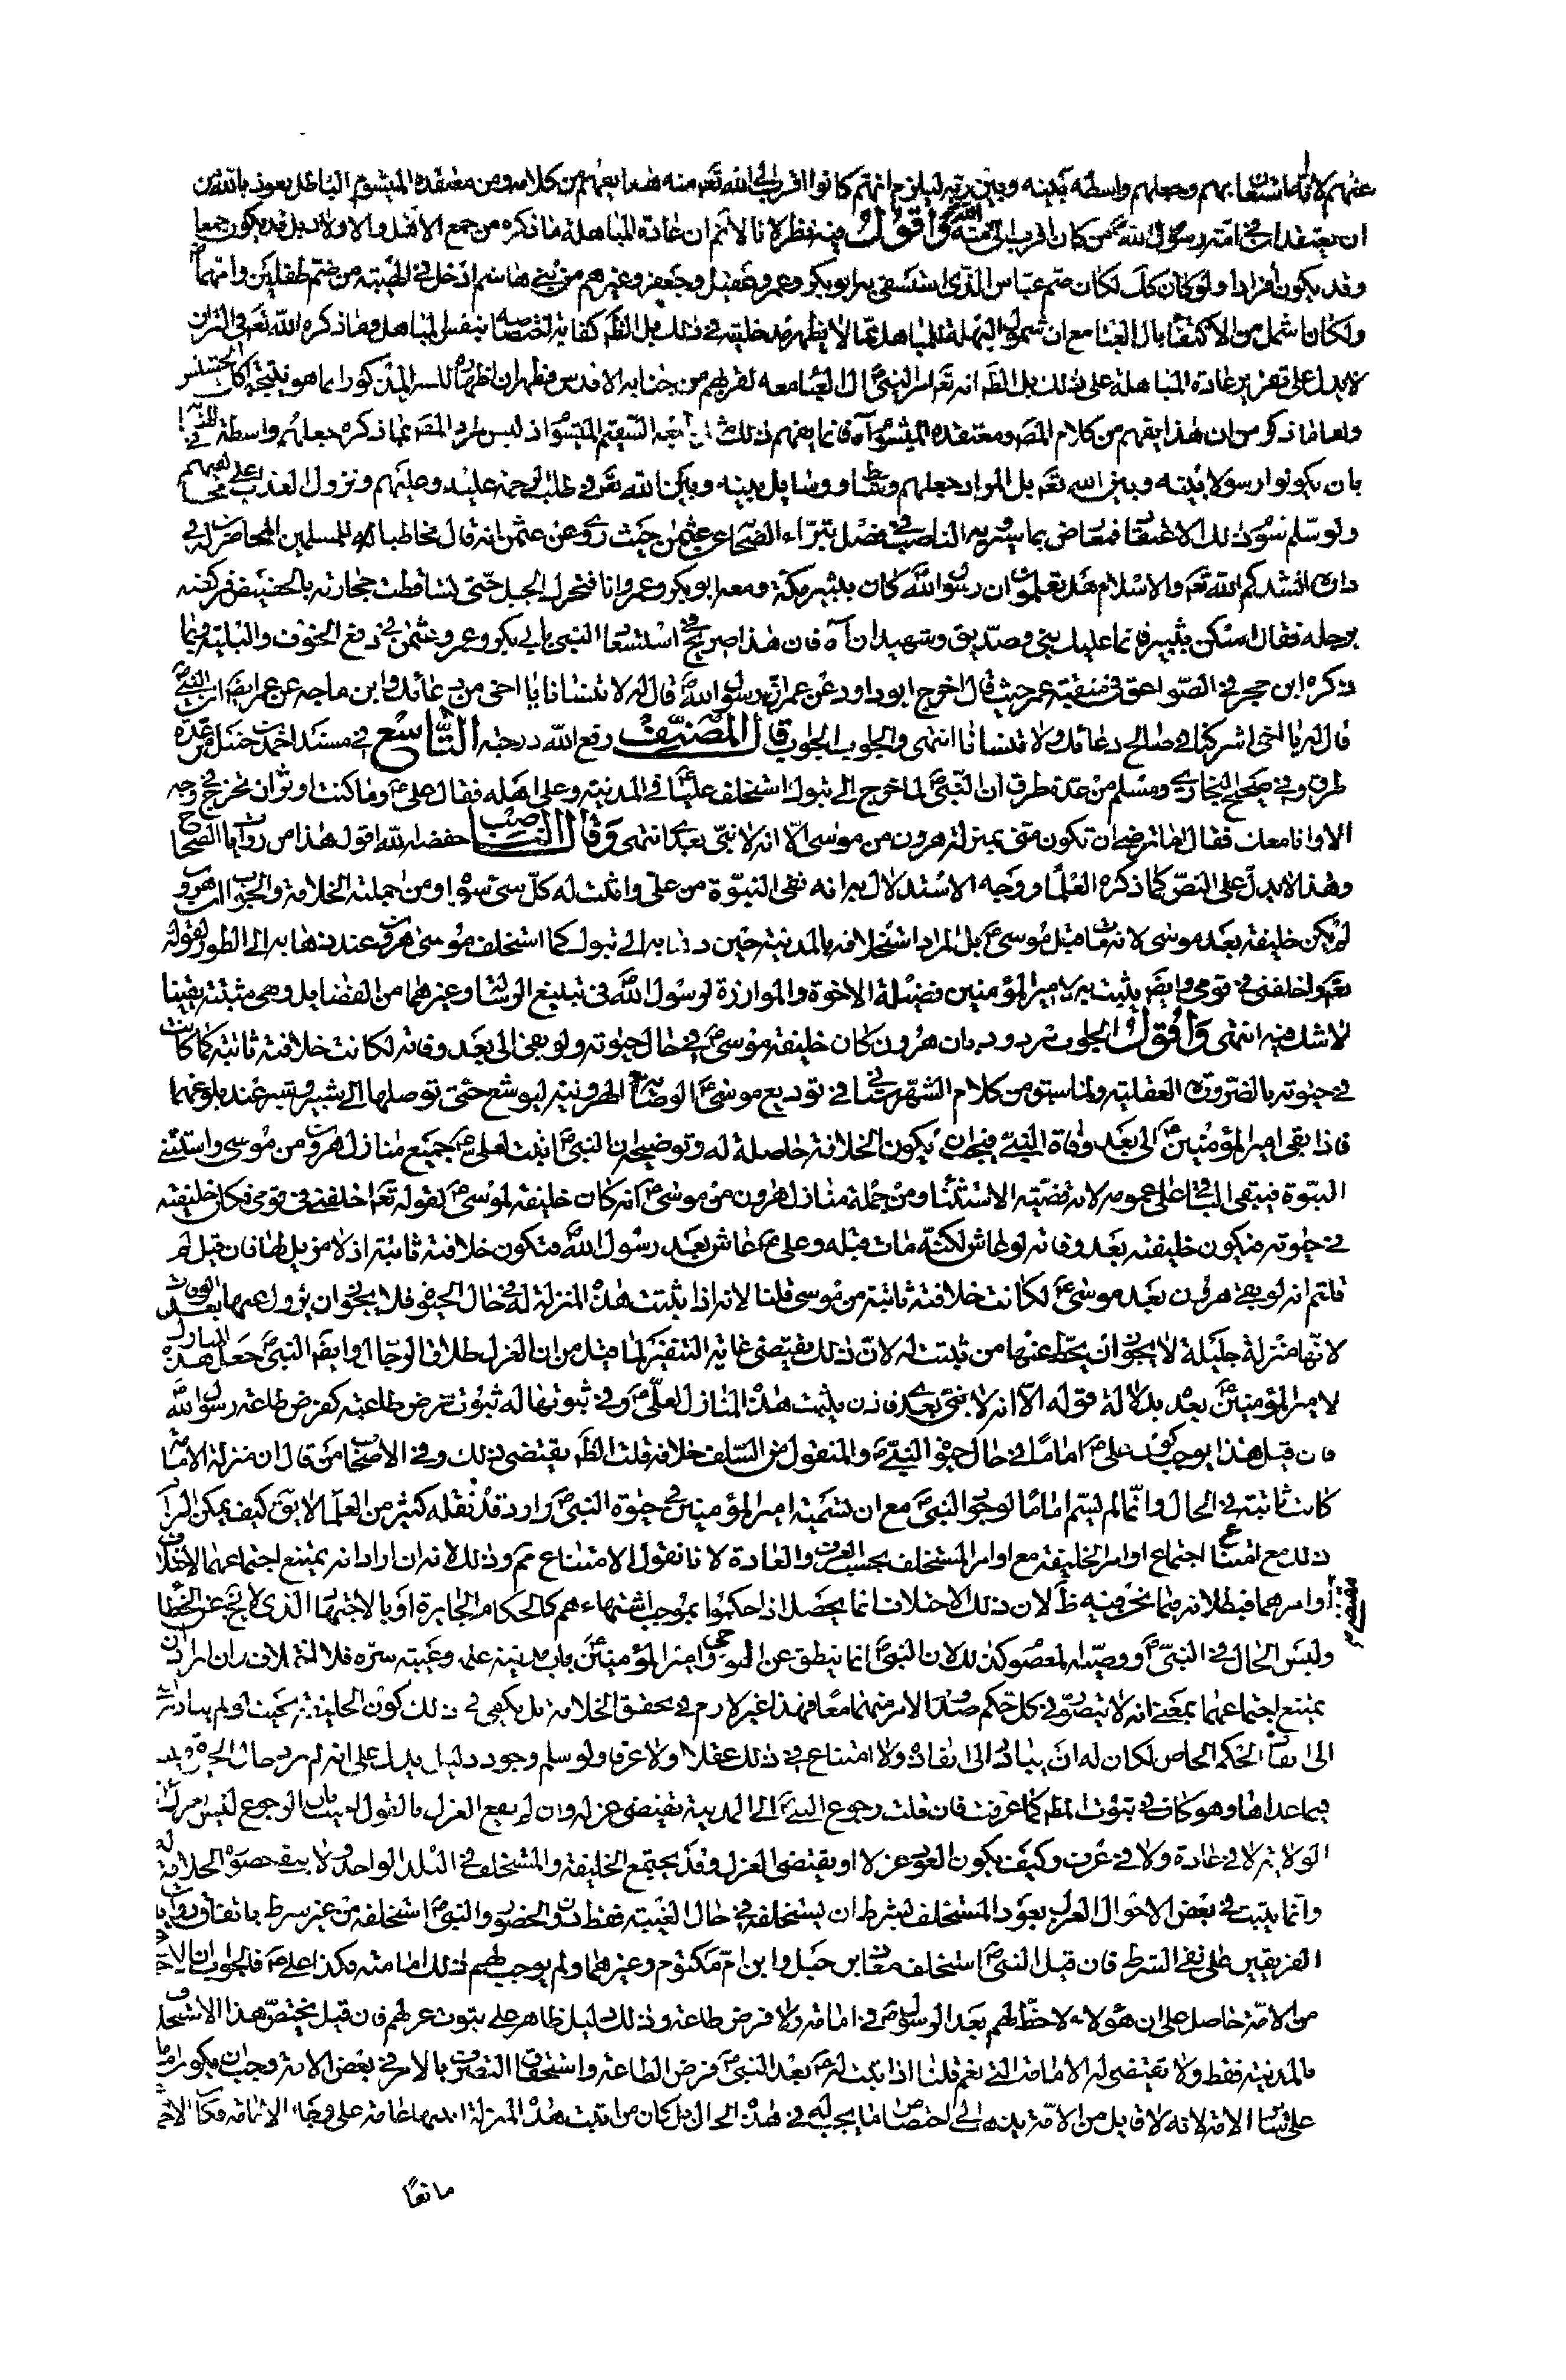 عنهم لانه ما استعان بهم وجعلهم واسطة بينه وبين ربه ليلزم انهم كانوا اقرب الى الله تعم منه هذا يفهم من كلامه ومن معتقده الميشوم الباطل نعوذ بالله من
ان يعتقد ان في امة رسول الله ص من كان اقرب الى الله منه واقول فيه نظر لانا لانم ان عادة المباهلة ما ذكره من جمع الاهل والاولاد بل قد يكون جمعا
وقد يكون افرادا ولو كان كك لكان ضم عباس الذي استسقى به ابو بكر وعمر وعقيل وجعفر وغيرهم من بني هاشم ادخل في الهيبة من ضم طفلين وامهما
ولكان اشمل من الاكتفاء بال العبا مع ان شمول البهلة للمباهل مما لا يظهر مدخليته في ذلك بل الظ كفاية اختصاصه بنفس المباهل وما ذكره الله تعم في القران
لا يدل على تقرير عادة المباهلة على ذلك بل الظ انه تعم امر النبي ص ال العبا معه لقربهم من جنابه الاقدس فظهر ان اظهاره للسر المذكور انما هو نتيجة
واما ما ذكر من ان هذا يفهم من كلام المص ومعتقده الميشوم اه فانما يفهم ذلك من فهمه السقيم الميشوم اذ ليس مراد المص بما ذكره جعلهم واسطة
بان يكونوا رسولا بينه وبين الله تعم بل المراد جعلهم وسائط ووسايل بينه وبين الله تعم في طلب الرحمة عليه وعليهم ونزول العذاب على
ولو سلم سوء ذلك الاعتقاد فمعارض بما سيرويه الناصب في فضل تبراء الصحابة عن عثمن حيث روى عن عثمن انه قال مخاطبا للمسلمين المحاضرين له في
داره انشدكم الله تعم والاسلام هل تعلمون ان رسول الله ص كان بثبير مكة ومعه ابو بكر وعمر وانا فتحرك الجبل حتى تساقطت حجارته بالحضيض فركضه
برجله فقال اسكن ثبير فانما عليك نبي وصديق وشهيدان اه فان هذا صريح في استسعاد النبي بابي بكر وعمر وعثمن في دفع الخوف والبلية وبما
ذكره ابن حجر في الصواعق في منقبة عمر حيث قال اخرج ابو داود عن عمر ان رسول الله ص قال له لا تنسانا يا اخي من دعائك وابن ماجه عن عمر ايضا ان النبي ص
قال له يا اخي اشركنا في صالح دعائك ولا تنسانا انتهى والجواب الجواب قال المصنف رفع الله درجته التاسع في مسند احمد بن حنبل من عدة
طرق وفي صحيح البخاري ومسلم من عدة طرق ان النبي ص لما خرج الى تبوك استخلف عليا في المدينة وعلى اهله فقال علي ع وما كنت اوثر ان تخرج في وجه
الا وانا معك فقال اما ترضى ان تكون منى بمنزلة هرون من موسى الا انه لا نبي بعدي انتهى وقال الناصب خفضه الله اقول هذا من روايات الصحاح
وهذا لا يدل على النص كما ذكره العلماء ووجه الاستدلال به انه نفى النبوة من علي واثبت له كل شئ سواها ومن جملته الخلافة والجواب ان هرون
لم يكن خليفة بعد موسى لانه مات قبل موسى ع بل المراد استخلافه بالمدينة حين ذهابه الى تبوك كما استخلف موسى هرون عند ذهابه الى الطور لقوله
تعم واخلفني في قومي وايضا يثبت به لامير المؤمنين فضيلة الاخوة والموازرة لرسول الله ص في تبليغ الرسالة وغيرهما من الفضايل وهي مثبتة يقينا
لا شك فيه انتهى واقول الجواب مردود بان هرون كان خليفة موسى ع في حال حيوته ولو بقى الى بعد وفاته لكانت خلافته ثابتة كما كانت
في حيوته بالضرورة العقلية ولما سبق من كلام الشهرستاني في توديع موسى ع الوصاية الهرونية ليوشع حتى توصلها الى شبير وشبر عند بلوغهما
فاذا بقى امير المؤمنين ع الى بعد وفاة النبي ص فيجب ان يكون الخلافة حاصلة له وتوضيحه ان النبي ص اثبت لعلي ع جميع منازل هرون من موسى واستثنى
النبوة فيبقى الباقي على عمومه لانه قضية الاستثناء ومن جملة منازل هرون من موسى ع انه كان خليفة لموسى ع لقوله تعم اخلفني في قومي فكان خليفته
في حيوته فيكون خليفته بعد وفاته لو عاش لكنه مات قبله وعلي ع عاش بعد رسول الله ص فتكون خلافته ثابتة اذ لا مزيل لها فان قيل لم
قلتم انه لو بقى هرون بعد موسى ع لكانت خلافته ثابتة من موسى قلنا لانه اذا ثبتت هذه المنزلة له في حال الحيوة فلا يجوز ان يزول عنها بعد الوفاة
لانها منزلة جليلة لا يجوز ان يحط عنها من ثبتت له لان ذلك يقتضى غاية التنفير لما قيل من ان العزل طلاق الرجال وايضا النبي ص جعل هذه المنازل
لامير المؤمنين ع بعده بدلالة قوله الا انه لا نبي بعدي فزن يثبت هذه المنازل لعلي ع وفي ثبوتها له ثبوت فرض طاعته كفرض طاعة رسول الله ص
فان قيل هذا يوجب كون علي ع اماما في حال حيوة النبي ص والمنقول من السلف خلافه قلت الظ يقتضى ذلك وفي الاصحاب من قال ان منزلة الامامة
كانت ثابتة في الحال وانما لم يسم اماما لوجود النبي ص مع ان تسمية امير المؤمنين في حيوة النبي ص وارد قد نقله كثير من العلماء لا يق كيف يمكن
ذلك مع امتناع اجتماع اوامر الخليفة مع اوامر المستخلف بحسب العرف والعادة لانا نقول الامتناع مم وذلك لانه ان اراد انه يمتنع اجتماعهما لاختلاف
اوامرهما فبطلانه فيما نحن فيه ظ لان ذلك الاختلاف انما يحصل اذا حكموا بموجب اشتهاءهم كالحكام الجابرة او بالاجتهاد الذي لا يخ عن الخطا
وليس الحال في النبي ص ووصيه المعصوم كذلك لان النبي ص انما ينطق عن الوحى وامير المؤمنين ع باب مدينة علمه وعيبة سره فلا اختلاف وان اراد انه
يمتنع اجتماعهما بمعنى انه لا يتصور في كل حكم صدور الامر منهما معا فهذا غير لازم في تحقق الخلافة بل يكفى في ذلك كون الخليفة بحيث لو لم يبادر
الى نفاذ الحكم الخاص لكان له ان يبادر الى انفاذه ولا امتناع في ذلك عقلا ولا عرفا ولو سلم وجود دليل يدل على انه لم يرد حال الحيوة
فيما عداها وهو كاف في ثبوت المط كما عرفت فان قلت رجوع النبي ص الى المدينة يقتضى عزله وان لم يقع العزل بالقول اجيب بان الرجوع ليس
الولاية لا في عادة ولا في عرف وكيف يكون العود عزلا او يقتضى العزل وقد يجتمع الخليفة والمستخلف في البلد الواحد ولا ينفي حضوره الخلافة
وانما يثبت في بعض الاحوال العزل بعود المستخلف بشرط ان يستخلفه في حال الغيبة فقط دون الحضور والنبي ص استخلفه من غير شرط باتفاق روايات
الفريقين على نفى الشرط فان قيل النبي ص استخلف معاذ بن جبل وابن ام مكتوم وغيرهما ولم يوجب لهم ذلك امامة فكذا علي ع فالجواب ان
من الامة حاصل على ان هؤلاء لا حظ لهم بعد الرسول ص في امامة ولا فرض طاعة وذلك دليل ظاهر على ثبوت عزلهم فان قيل يختص هذا الاستخلاف
بالمدينة فقط ولا تقتضى له الامامة التي تعم قلنا اذا ثبت له ع بعد النبي ص فرض الطاعة واستحقاق التصرف بالامر في بعض الامة وجب ان يكون
على ساير الامة لانه لا قايل من الامة يذهب الى اختصاص ما يجب له في هذه الحال بل كان من اثبت هذه المنزلة اثبتها عامة على وجه الامامة فكان
مانعا